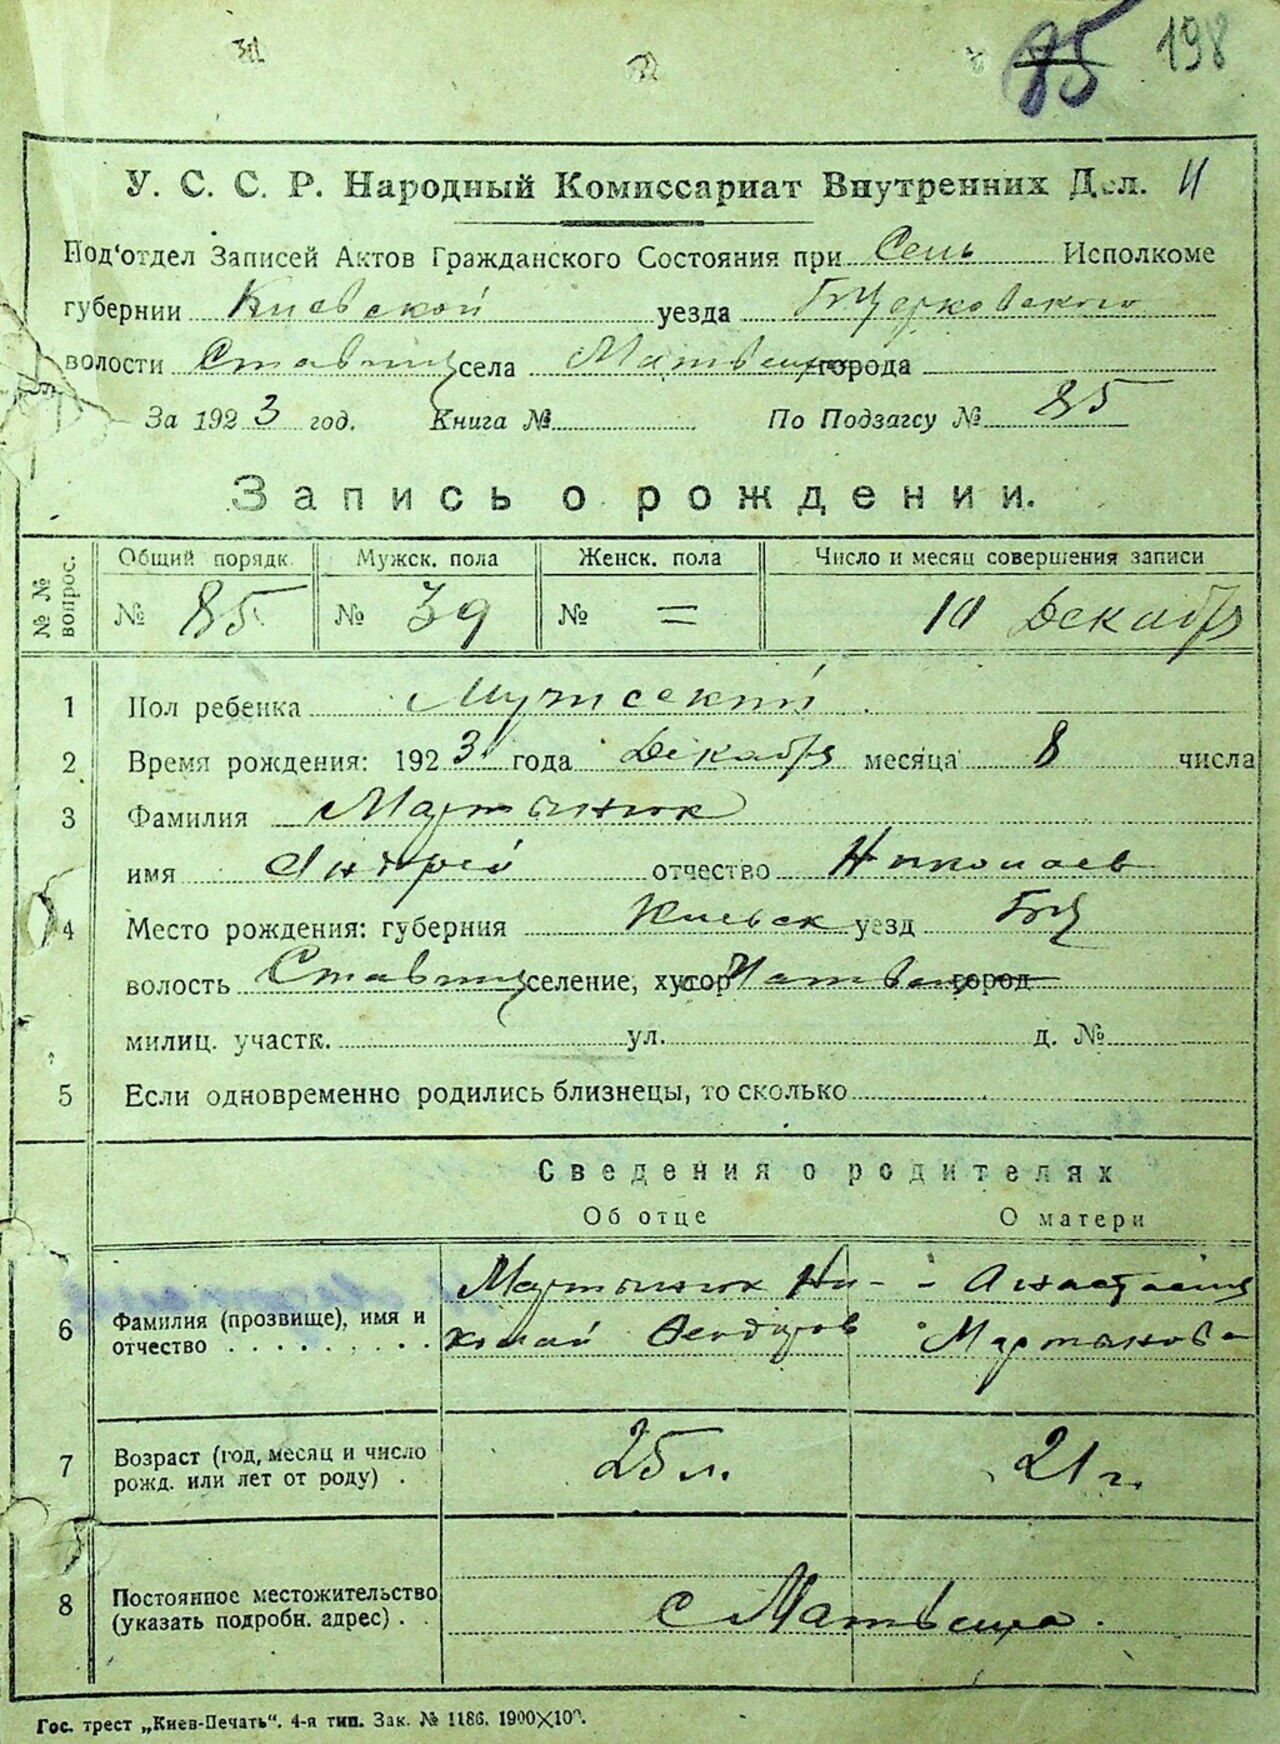 85 198
У. С. С. Р. Народный Комиссариат Внутренних Дел.
Под'отдел Записей Актов Гражданского Состояния при Сель Исполкоме
губернии Киевской уезда БЦерковского
волости Ставищ села Матвеиха города
За 1923 год. Книга № По Подзагсу № 85
Запись о рождении.
№ № вопрос. Общий порядк. Мужск. пола Женск. пола Число и месяц совершения записи
№ 85 № 39 № = 10 Декабря
1 Пол ребенка Мужеский
2 Время рождения: 1923 года Декабря месяца 8 числа
3 Фамилия Мартынюк
имя Андрей отчество Николаев
4 Место рождения: губерния Киевск уезд БЦ
волость Ставищ селение, хутор Матвеиха город
милиц. участк. ул. д. №
5 Если одновременно родились близнецы, то сколько
Сведения о родителях
Об отце О матери
6 Фамилия (прозвище), имя и отчество
Мартынюк Ни- - Анастасия
колай Феодоров Мартынова
7 Возраст (год, месяц и число рожд. или лет от роду) . 25 л. 21 г.
8 Постоянное местожительство (указать подробн. адрес) . . с Матвеиха.
Гос. трест „Киев-Печать“. 4-я тип. Зак. № 1186. 1900×100.